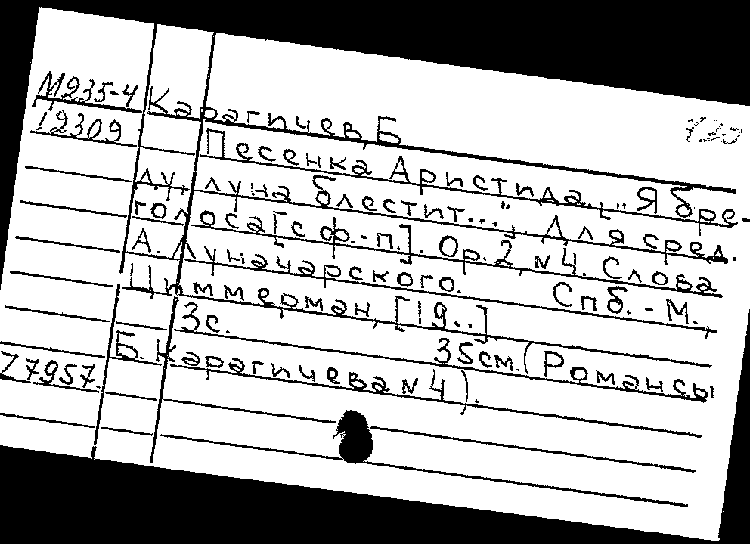 М235-4 Карагичев, Б
12309 Песенка Аристида. [„Я бре-
ду, луна блестит..."]. Для сред.
голоса [с ф.-п.]. Ор. 2, N 4. Слова
А. Луначарского. Спб. - М.,
Циммерман, [19..]
3с. 35см. (Романсы
Б. Карагичева N 4).
77957.